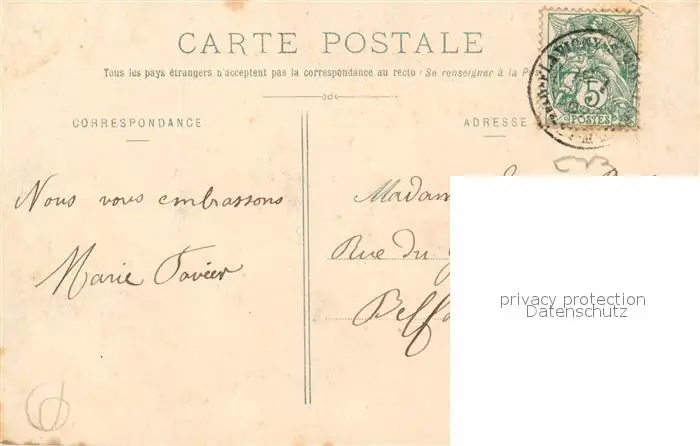 CARTE POSTALE
Tous les pays étrangers n'acceptent pas la correspondance au recto (Se renseigner à la P
CORRESPONDANCE
ADRESSE
5
POSTES
Nous vous embrassons
Marie
Madam
Rue du
Belfo
privacy protection
Datenschutz